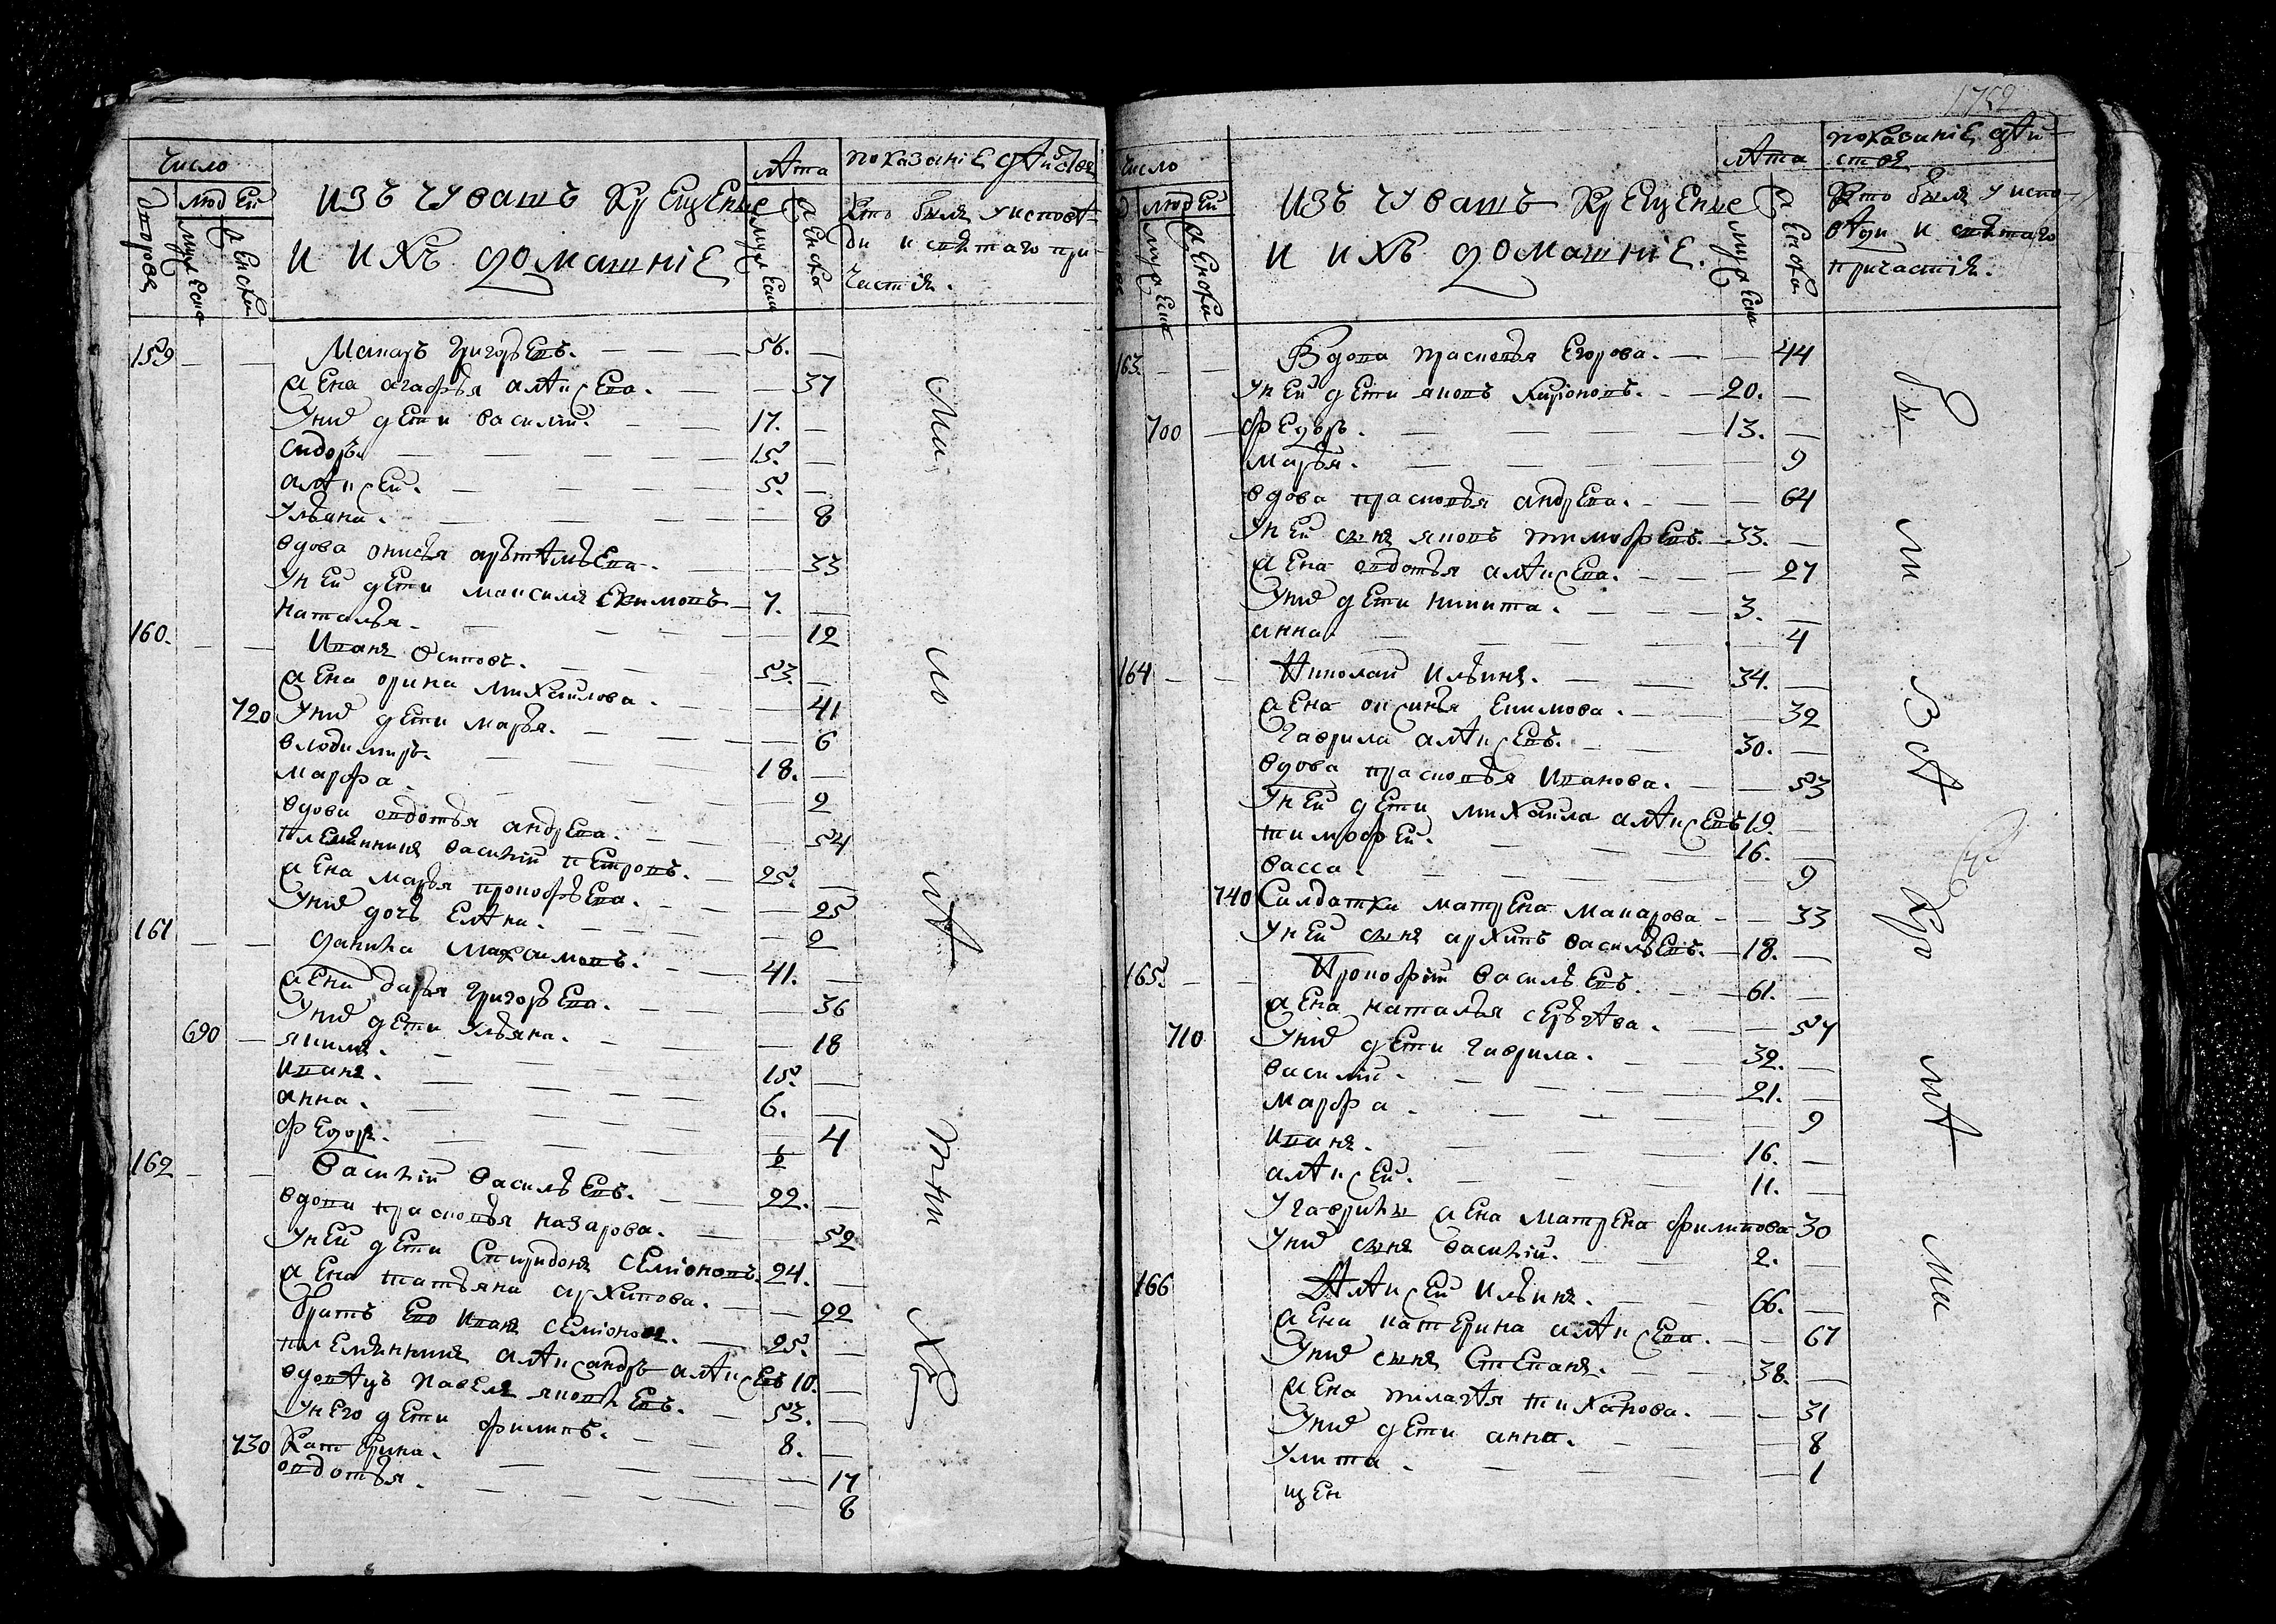 число
людей
дворовъ
мужеска
женска
изъ чувашъ крещеные
и ихъ домашнiе
лѣта
мужеска
женска
показанiе дѣиства
Кто былъ уисповѣ-
ди и святаго при-
частiя.
159 Макаръ Григорьевъ. 56.
жена агафья алѣксева. 37
Унихъ дети василiи. 17.
сидоръ. 15.
алѣксеи. 5.
Ульяна. 8
вдова онисья артѣмьева. 33
Уней дети максимъ екимовъ 7.
наталья. 12
160. Иванъ Осиповъ. 53.
жена орина михаилова. 41
720 Унихъ дети марья. 6
влодимиръ. 18.
марфа. 2
вдова овдотья андрева. 54
племянникъ василiй петровъ. 25.
жена марья прокофьева. 25
Унихъ дочь елѣна. 2
161 данила максимовъ. 41.
жена дарья григорьева. 36
Унихъ дети ульяна. 18
690 якимъ. 15.
иванъ. 6.
анна. 4
федоръ.
162 Василiй Васильевъ. 22.
вдова прасковья назарова. 52
Уней дети Спиридонъ семiоновъ. 24.
жена татьяна архипова. 22
братъ ево иванъ семiоновъ. 25.
племянникъ алѣксандръ алѣксевъ 10.
вдовѣцъ павелъ яковлевъ. 53.
Унего дети филипъ. 8.
730 Катерина. 17
овдотья. 8
1752
число
людей
мужеска
женска
изъ чувашъ крещеные
и ихъ домашнiе.
лѣта
мужеска
женска
показанiе дѣи-
ства
Кто былъ уиспо-
вѣди и святаго
причастiя.
163. Вдова прасковья Егорова. 44
уней дети яковъ Кироновъ. 20.
700 федоръ. 13.
марья. 9
вдова прасковья андрева. 64
Уней сынъ яковъ тимофевъ. 33.
жена овдотья алѣксева. 27
Унихъ дети никита. 3.
анна. 4
164 Николаи Ильинъ. 34.
жена оксинья екимова. 32
гаврила алѣксевъ. 30.
вдова прасковья Иванова. 53
Уней дети михаила алѣксевъ 19.
тимофей. 16.
васса. 9
740 Салдатка матрена макарова 33
Уней сынъ архипъ васильевъ. 18.
165. Прокофiй Васильевъ. 61.
жена наталья сергѣва. 57
710 Унихъ дети гаврила. 32.
василiи. 21.
марфа. 9
иванъ. 16.
алѣксеи. 11.
Угаврилы жена матрена филипова 30
Унихъ сынъ василiй. 2.
166 Алѣксей Ильинъ. 66.
жена катерина алѣксева. 67
Унихъ сынъ Степанъ. 38.
жена пилагѣя тиханова. 31
Унихъ дети анна. 8
улита. 1
щен